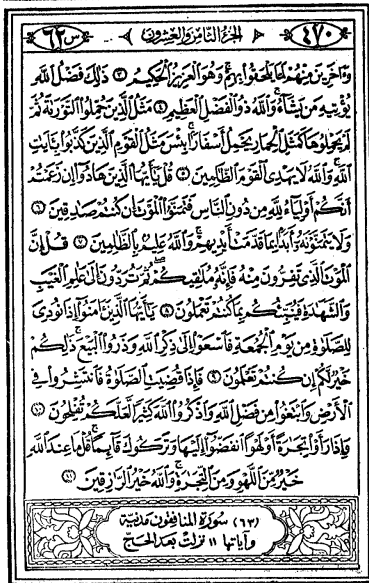 ٤٧٠ الجزء الثامن والعشرون س ٦٢
وَءَاخَرِينَ مِنْهُمْ لَمَّا يَلْحَقُوا۟ بِهِمْ وَهُوَ الْعَزِيزُ الْحَكِيمُ ٣ ذَٰلِكَ فَضْلُ اللَّهِ
يُؤْتِيهِ مَن يَشَآءُ وَاللَّهُ ذُو الْفَضْلِ الْعَظِيمِ ٤ مَثَلُ الَّذِينَ حُمِّلُوا التَّوْرَىٰةَ ثُمَّ
لَمْ يَحْمِلُوهَا كَمَثَلِ الْحِمَارِ يَحْمِلُ أَسْفَارًا بِئْسَ مَثَلُ الْقَوْمِ الَّذِينَ كَذَّبُوا بِـَٔايَٰتِ
اللَّهِ وَاللَّهُ لَا يَهْدِى الْقَوْمَ الظَّٰلِمِينَ ٥ قُلْ يَٰٓأَيُّهَا الَّذِينَ هَادُوٓا إِن زَعَمْتُمْ
أَنَّكُمْ أَوْلِيَآءُ لِلَّهِ مِن دُونِ النَّاسِ فَتَمَنَّوُا الْمَوْتَ إِن كُنتُمْ صَٰدِقِينَ ٦
وَلَا يَتَمَنَّوْنَهُۥٓ أَبَدًۢا بِمَا قَدَّمَتْ أَيْدِيهِمْ وَاللَّهُ عَلِيمٌۢ بِالظَّٰلِمِينَ ٧ قُلْ إِنَّ
الْمَوْتَ الَّذِى تَفِرُّونَ مِنْهُ فَإِنَّهُۥ مُلَٰقِيكُمْ ثُمَّ تُرَدُّونَ إِلَىٰ عَٰلِمِ الْغَيْبِ
وَالشَّهَٰدَةِ فَيُنَبِّئُكُم بِمَا كُنتُمْ تَعْمَلُونَ ٨ يَٰٓأَيُّهَا الَّذِينَ ءَامَنُوٓا إِذَا نُودِىَ
لِلصَّلَوٰةِ مِن يَوْمِ الْجُمُعَةِ فَاسْعَوْا إِلَىٰ ذِكْرِ اللَّهِ وَذَرُوا الْبَيْعَ ذَٰلِكُمْ
خَيْرٌ لَّكُمْ إِن كُنتُمْ تَعْلَمُونَ ٩ فَإِذَا قُضِيَتِ الصَّلَوٰةُ فَانتَشِرُوا فِى
الْأَرْضِ وَابْتَغُوا مِن فَضْلِ اللَّهِ وَاذْكُرُوا اللَّهَ كَثِيرًا لَّعَلَّكُمْ تُفْلِحُونَ ١٠
وَإِذَا رَأَوْا تِجَٰرَةً أَوْ لَهْوًا انفَضُّوٓا إِلَيْهَا وَتَرَكُوكَ قَآئِمًا قُلْ مَا عِندَ اللَّهِ
خَيْرٌ مِّنَ اللَّهْوِ وَمِنَ التِّجَٰرَةِ وَاللَّهُ خَيْرُ الرَّٰزِقِينَ ١١
(٦٣) سورة المنافقون مدنية
وآياتها ١١ نزلت بعد الحج